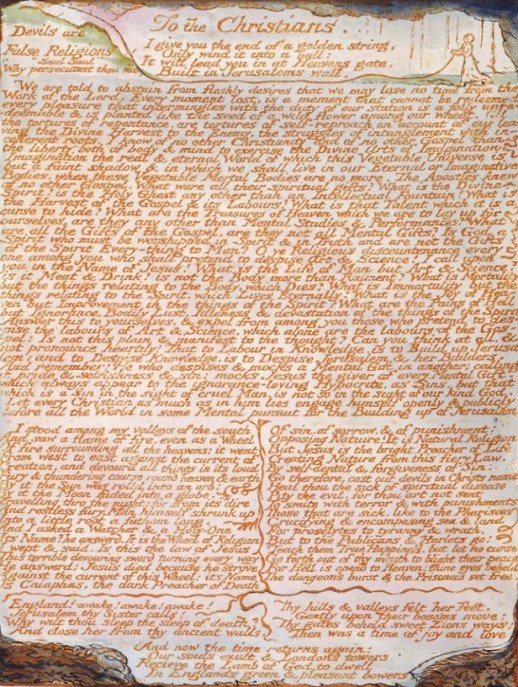 To the Christians.
Devils are
False Religions
"Saul Saul"
"Why persecutest thou me."
I give you the end of a golden string,
Only wind it into a ball:
It will lead you in at Heavens gate,
Built in Jerusalems wall.
We are told to abstain from fleshly desires that we may lose no time from the
Work of the Lord. Every moment lost, is a moment that cannot be redeemed
every pleasure that intermingles with the duty of our station is a folly unre-
deemable & is planted like the seed of a wild flower among our wheat. All
the tortures of repentance. are tortures of self-reproach on account of our
ing the Divine Harvest to the Enemy, the struggles of intanglement with in-
coherent roots. I know of no other Christianity and of no other Gospel than
the liberty both of body & mind to exercise the Divine Arts of Imagination.
Imagination the real & eternal World of which this Vegetable Universe is
but a faint shadow & in which we shall live in our Eternal or Imaginative
Bodies, when these Vegetable Mortal Bodies are no more. The Apostles knew
of no other Gospel. What were all their spiritual gifts? What is the Divine
Spirit? is the Holy Ghost any other than an Intellectual Fountain? What is
the Harvest of the Gospel & its Labours? What is that Talent which it is a
curse to hide? What are the Treasures of Heaven which we are to lay up for
ourselves, are they any other than Mental Studies & Performances? What
are all the Gifts of the Gospel, are they not all Mental Gifts? Is God a
Spirit who must be worshipped in Spirit & in Truth and are not the Gifts
of the Spirit Every-thing to Man? O ye Religious discountenance every
one among you who shall pretend to despise Art & Science! I call upon
you in the Name of Jesus! What is the Life of Man but Art & Science?
is it Meat & Drink? is not the Body more than Raiment? What is Mortality
but the things relating to the Body, which Dies? What is Immortality but the
things relating to the Spirit, which Lives Eternally! What is the Joy of Heaven
but Improvement in the things of the Spirit? What are the Pains of Hell
but Ignorance, Bodily Lust, Idleness & devastation of the things of the Spirit
Answer this to yourselves, & expel from among you those who pretend to despise
the labours of Art & Science, which alone are the labours of the Gos-
pel: Is not this plain & manifest to the thought? Can you think at all
& not pronounce heartily! That to Labour in Knowledge, is to Build up Jerusa-
lem: and to Despise Knowledge, is to Despise Jerusalem & her Builders.
And remember: He who despises & mocks a Mental Gift in another; calling
it pride & selfishness & sin; mocks Jesus the giver of every Mental Gift,
which always appear to the ignorance-loving Hypocrite, as Sins, but that
which is a Sin in the sight of cruel Man, is not so in the sight of our kind God.
Let every Christian as much as in him lies engage himself openly & publicly
before all the World in some Mental pursuit for the Building up of Jerusalem
I stood among my valleys of the south
And saw a flame of fire, even as a Wheel
Of fire surrounding all the heavens: it went
From west to east against the current of
Creation, and devourd all things in its loud
Fury & thundering course round heaven & earth
By it the Sun was rolld into an orb:
By it the Moon faded into a globe,
Travelling thro the night: for from its dire
And restless fury, Man himself shrunk up
Into a little root a fathom long.
And I asked a Watcher & a Holy-One
Its Name? he answerd. It is the Wheel of Religion
I wept & said. Is this the law of Jesus
This terrible devouring sword turning every way
He answerd; Jesus died because he strove
Against the current of this Wheel: its Name
Is Caiaphas, the dark Preacher of Death
Of sin, of sorrow, & of punishment;
Opposing Nature! It is Natural Religion
But Jesus is the bright Preacher of Life
Creating Nature from this fiery Law,
By self-denial & forgiveness of Sin.
Go therefore, cast out devils in Christs name
Heal thou the sick of spiritual disease
Pity the evil, for thou art not sent
To smite with terror & with punishments
Those that are sick, like to the Pharisees
Crucifying & encompassing sea & land
For proselytes to tyranny & wrath.
But to the Publicans & Harlots go!
Teach them True Happiness, but let no curse
Go forth out of thy mouth to blight their peace
For Hell is opend to Heaven; thine eyes beheld
The dungeons burst & the Prisoners set free.
England! awake! awake! awake!
Jerusalem thy Sister calls!
Why wilt thou sleep the sleep of death?
And close her from thy ancient walls.
Thy hills & valleys felt her feet,
Gently upon their bosoms move:
Thy gates beheld sweet Zions ways;
Then was a time of joy and love
And now the time returns again:
Our souls exult & Londons towers,
Recieve the Lamb of God to dwell
In Englands green & pleasant bowers.